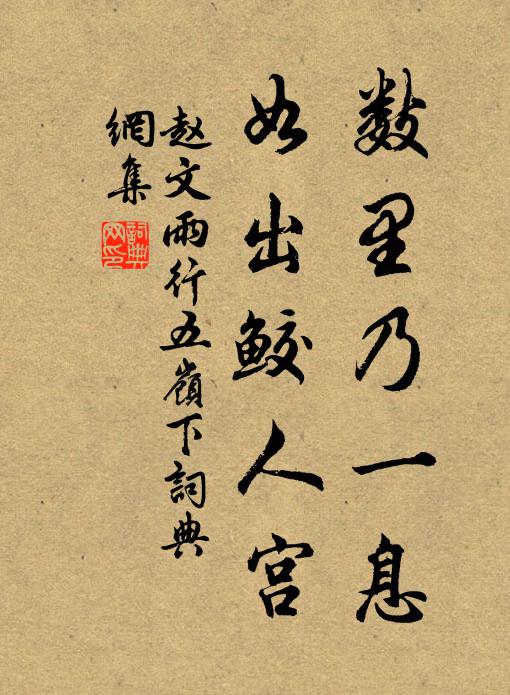 数里乃一息
如出鲛人宫
赵文雨行五嶺下詞典
網集
詞典
网印